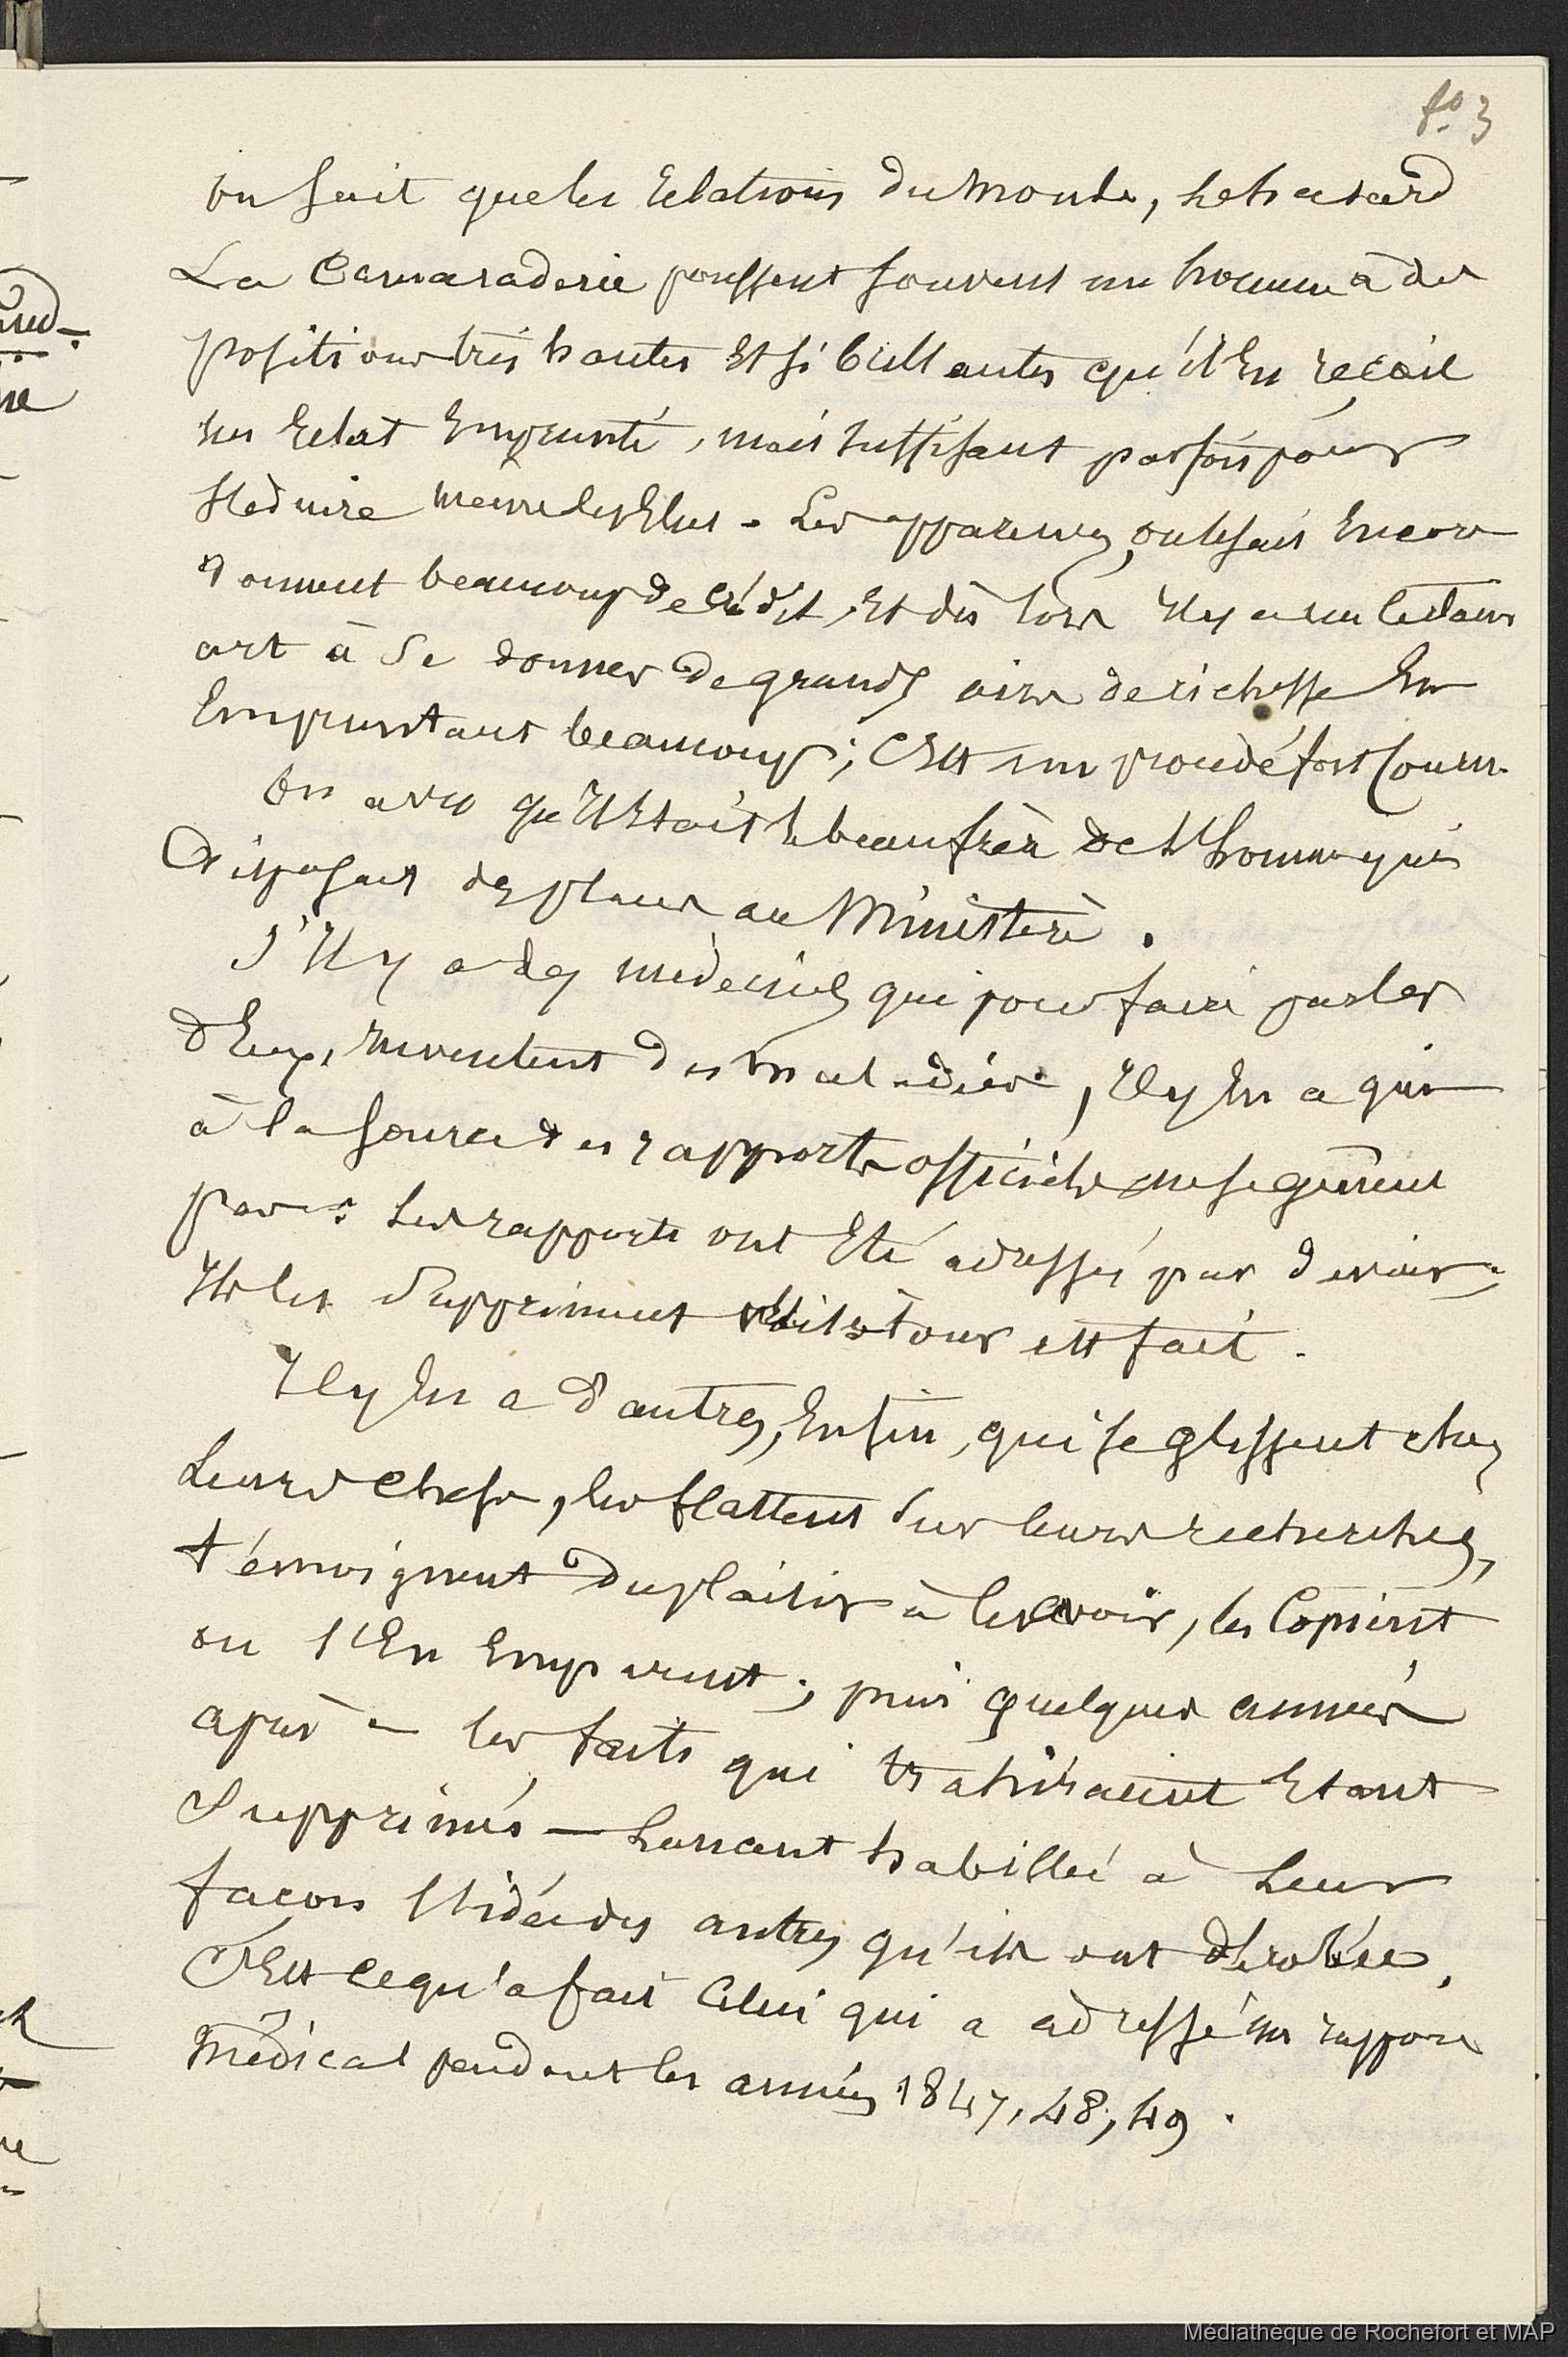 fo. 3
On sait que les relations du monde, le hasard
La Camaraderie poussent souvent un homme à des
positions très hautes et si brillantes qu'il en reçoit
un Eclat Emprunté, mais suffisant parfois pour
séduire même les Elus. Les apparences, on le sait Encore
donnent beaucoup de crédit, Et dès lors Il y a un certain
art à se donner de grands airs de richesse En
Empruntant beaucoup ; C'Est un procédé fort Couru.
On a vu qu'Il Etait le beau frère de l'homme qui
Disposait des places au Ministère.
S'Il y a des médecins qui pour faire parler
d'Eux, Inventent des maladies, Il y En a qui
à la source des rapports officiels ne se gênent
pas : Les rapports ont Eté adressés par devoir ;
Ils les Suppriment et le tour est fait.
Il y En a d'autres, Enfin, qui se glissent chez
Leurs Chefs, les flattent sur leurs recherches,
témoignent du plaisir à les avoir, les Copient
ou s'En Emparent ; puis quelques années
après — les faits qui trahiraient Etant
Supprimés — Lancent habillée à Leur
façon l'idée des autres qu'ils ont dérobée.
C'Est ce qu'a fait Celui qui a adressé un rapport
Médical pendant les années 1847, 48, 49.
Médiathèque de Rochefort et MAP